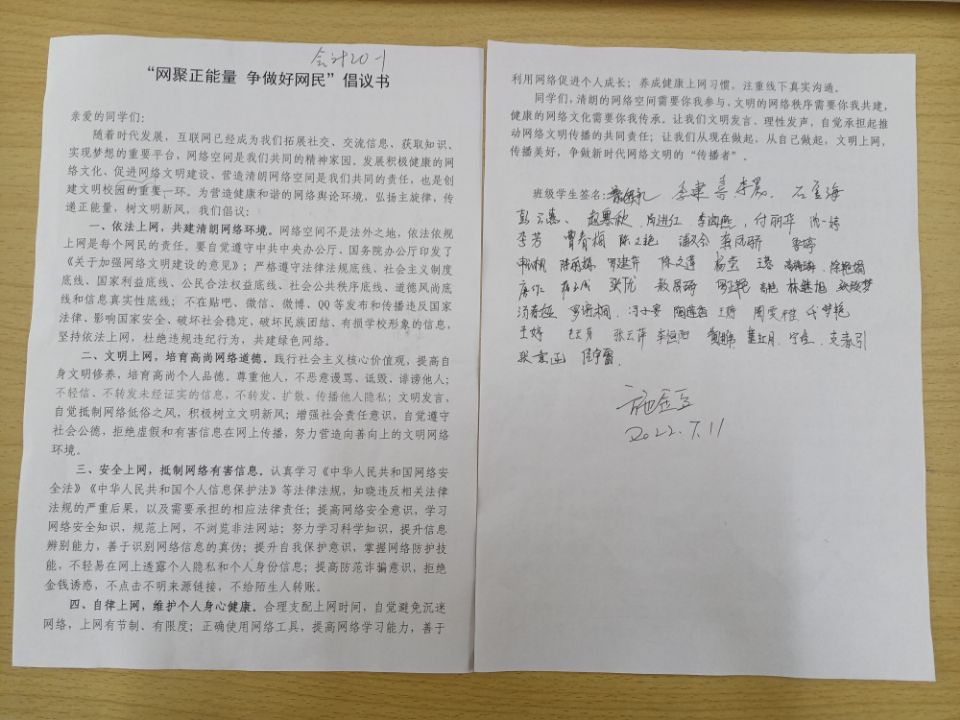 会计20-1
“网聚正能量 争做好网民”倡议书
亲爱的同学们：
随着时代发展，互联网已经成为我们拓展社交、交流信息、获取知识、
实现梦想的重要平台，网络空间是我们共同的精神家园。发展积极健康的网
络文化、促进网络文明建设、营造清朗网络空间是我们共同的责任，也是创
建文明校园的重要一环。为营造健康和谐的网络舆论环境，弘扬主旋律，传
递正能量，树文明新风，我们倡议：
一、依法上网，共建清朗网络环境。网络空间不是法外之地，依法依规
上网是每个网民的责任。要自觉遵守中共中央办公厅、国务院办公厅印发了
《关于加强网络文明建设的意见》；严格遵守法律法规底线、社会主义制度
底线、国家利益底线、公民合法权益底线、社会公共秩序底线、道德风尚底
线和信息真实性底线；不在贴吧、微信、微博、QQ等发布和传播违反国家
法律、影响国家安全、破坏社会稳定，破坏民族团结、有损学校形象的信息，
坚持依法上网，杜绝违规违纪行为，共建绿色网络。
二、文明上网，培育高尚网络道德。践行社会主义核心价值观，提高自
身文明修养，培育高尚个人品德。尊重他人，不恶意谩骂、诋毁、诽谤他人；
不轻信、不转发未经证实的信息，不转发、扩散、传播他人隐私；文明发言，
自觉抵制网络低俗之风，积极树立文明新风；增强社会责任意识，自觉遵守
社会公德，拒绝虚假和有害信息在网上传播，努力营造向善向上的文明网络
环境。
三、安全上网，抵制网络有害信息。认真学习《中华人民共和国网络安
全法》《中华人民共和国个人信息保护法》等法律法规，知晓违反相关法律
法规的严重后果，以及需要承担的相应法律责任；提高网络安全意识，学习
网络安全知识，规范上网，不浏览非法网站；努力学习科学知识，提升信息
辨别能力，善于识别网络信息的真伪；提升自我保护意识，掌握网络防护技
能，不轻易在网上透露个人隐私和个人身份信息；提高防范诈骗意识，拒绝
金钱诱惑，不点击不明来源链接，不给陌生人转账。
四、自律上网，维护个人身心健康。合理支配上网时间，自觉避免沉迷
网络，上网有节制、有限度；正确使用网络工具，提高网络学习能力，善于
利用网络促进个人成长；养成健康上网习惯，注重线下真实沟通。
同学们，清朗的网络空间需要你我参与，文明的网络秩序需要你我共建，
健康的网络文化需要你我传承。让我们文明发言、理性发声，自觉承担起推
动网络文明传播的共同责任；让我们从现在做起，从自己做起，文明上网，
传播美好，争做新时代网络文明的“传播者”。
班级学生签名：
付丽华
李芳 曹春梅
杨莹
王婷 张云萍
施金立
2022.7.11